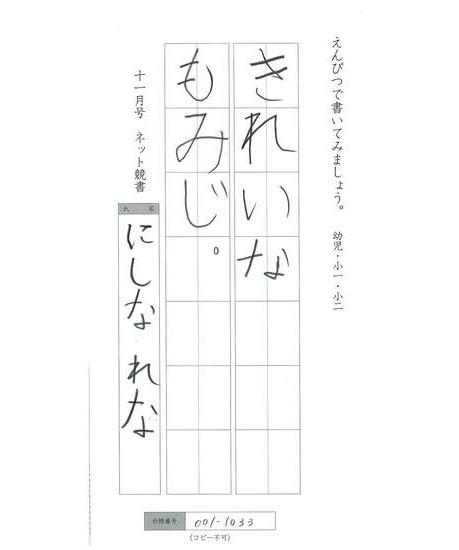 えんぴつで書いてみましょう。 幼児・小一・小二
きれいな
もみじ。
十一月号 ネット競書
氏 名
にしな れな
会員番号 001-1033
(コピー不可)